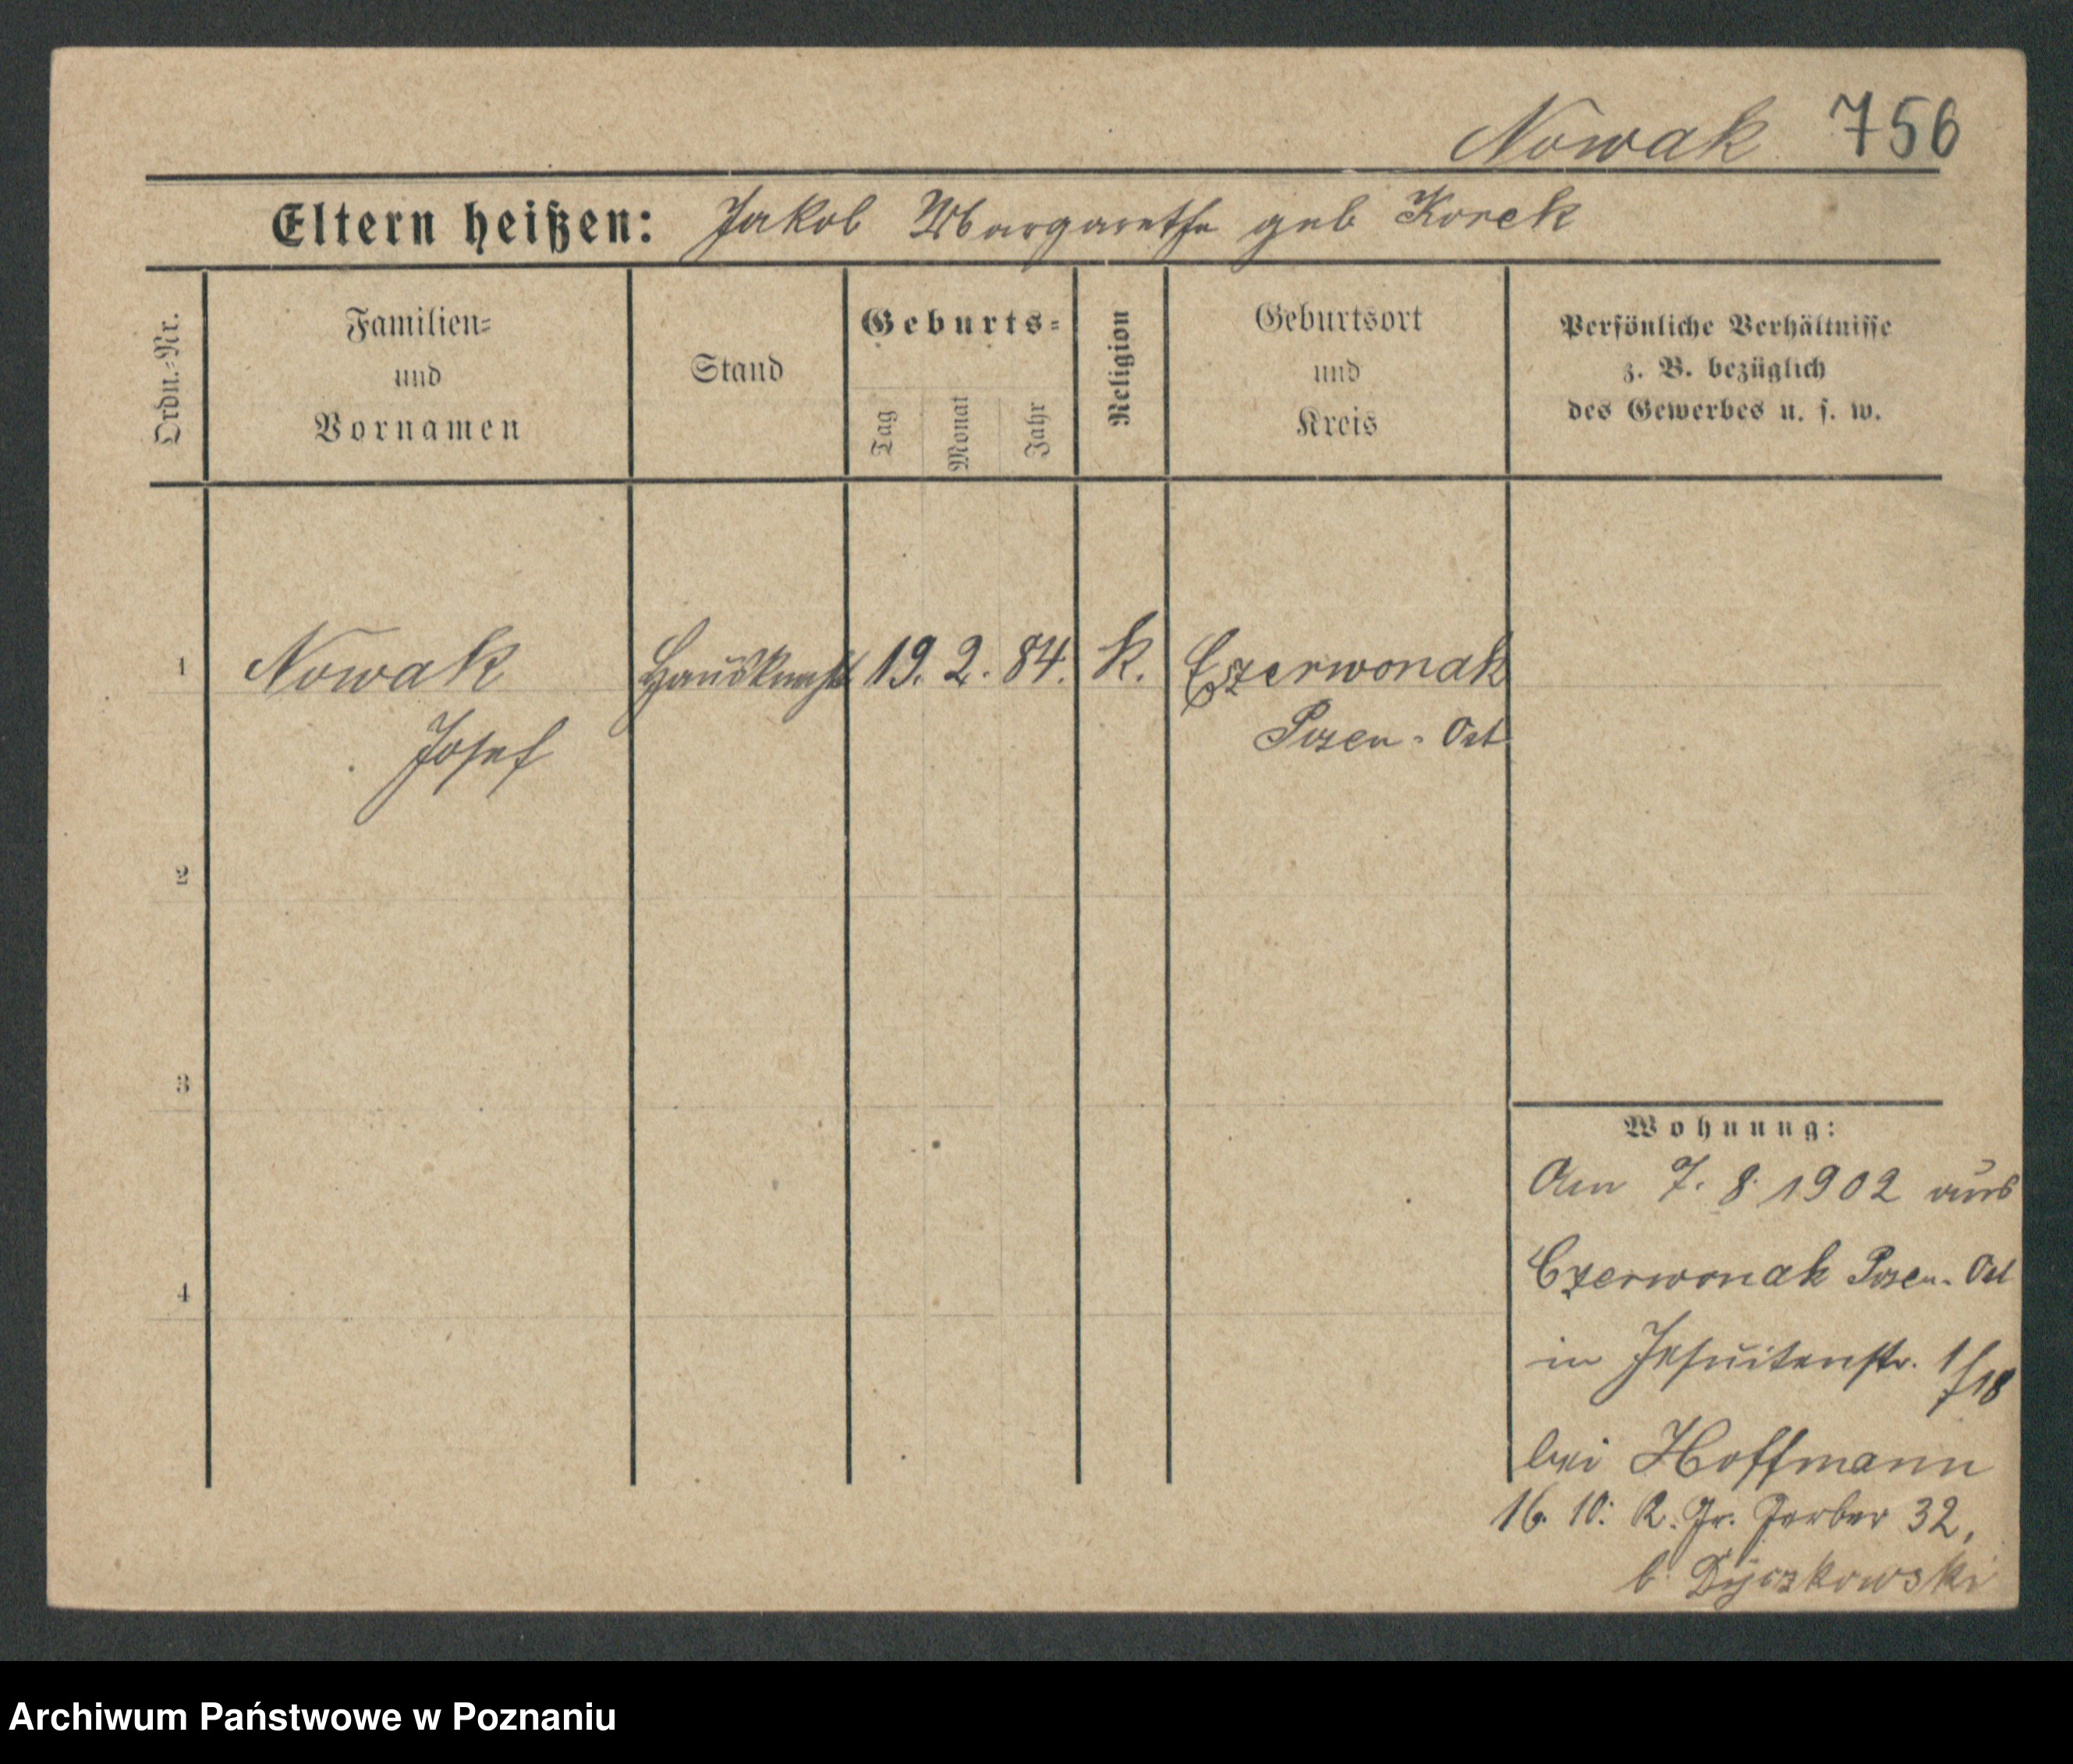 Nowak 756
Eltern heißen: Jakob Margarethe geb Korek
Ordn.-Nr.
Familien-
und
Vornamen
Stand
Geburts-
Tag
Monat
Jahr
Religion
Geburtsort
und
Kreis
Persönliche Verhältnisse
z. B. bezüglich
des Gewerbes u. s. w.
1 Nowak Hausknecht 19. 2. 84. k. Czerwonak
Josef Posen-Ost
2
3
4
Wohnung:
Am 7. 8. 1902 aus
Czerwonak Posen-Ost
in Jesuitenstr. 1/18
bei Hoffmann
16. 10: Gr. Gerber 32,
b.
Archiwum Państwowe w Poznaniu